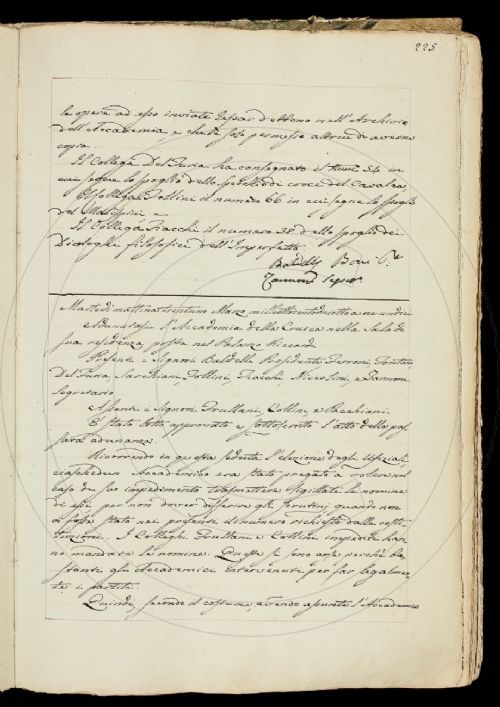 225
le opere ad esso inviate passar debbono nell'Archivio
dell'Accademia, e che sia permesso altrui di averne
copia.
Il Collega Del Furia ha consegnato il num. 54 in
cui segue lo spoglio dello Specchio di croce del Cavalca
Il Collega Follini il numero 66 in cui segue lo spoglio
del
Il Collega Fiacchi il numero 38 dello spoglio dei
Dialoghi filosofici dell'Imperfetto.
Baldelli Boni P.e
Zannoni Segret.
Martedì mattina trentuno Marzo milleottocentodiciotto a ore undici
Adunatasi l'Accademia della Crusca nella Sala di
sua residenza, posta nel Palazzo Riccardi
Presenti i Signori Baldelli Presidente Ferroni, Fontani
Del Furia, Sarchiani, Follini, Fiacchi, Niccolini, e Zannoni
Segretario
Assenti i Signori Frullani, Collini, e Bacchiani.
È stato letto approvato e sottoscritto l'atto della pas-
sata adunanza.
Ricorrendo in questa seduta l'elezione degli Ufiziali,
ciaschedun Accademico era stato pregato a volere nel
caso di suo impedimento trasmettere sigillate le nomine
di essi per non dover differire gli Scrutini, quando non
vi fosse stato nei presenti il numero richiesto dalle costi-
tuzioni. I Colleghi Frullani e Collini impediti han-
no mandate le nomine. Queste si sono arse perchè ba-
stanti gli Accademici intervenuti per far legalmen-
te i partiti.
Quindi, secondo il costume, avendo assunto l'Accademico